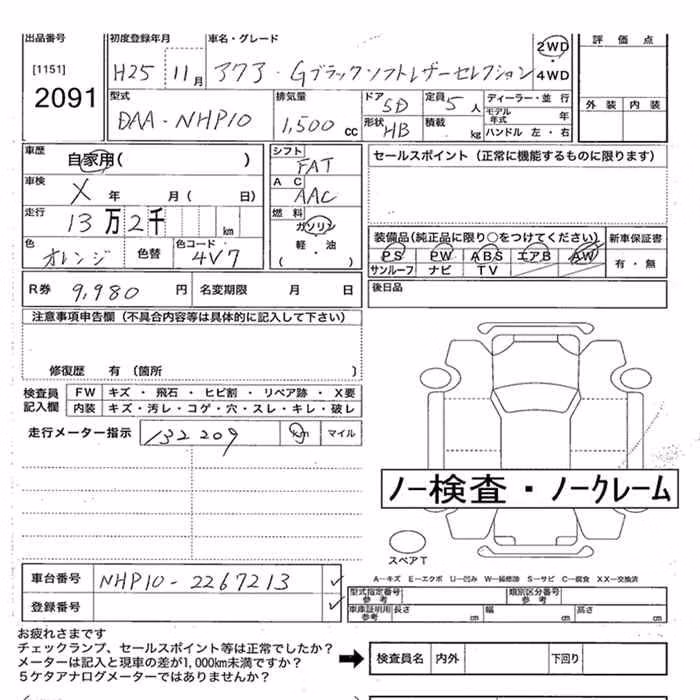 出品番号
[1151]
2091
初度登録年月
H25 11月
車名・グレード
アクア・Gブラックソフトレザーセレクション
2WD
・
4WD
評価点
外装 内装
型式
DAA-NHP10
排気量
1,500 cc
ドア 5D
形状 HB
定員 5 人
積載 kg
ディーラー・並行
モデル年式 年
ハンドル 左・右
車歴
自家用( )
車検
X 年 月( 日)
走行
13万2千 km
色
オレンジ
色替
色コード
4V7
シフト
FAT
AC
AAC
燃料
ガソリン
軽・油
( )
セールスポイント(正常に機能するものに限ります)
装備品(純正品に限り○をつけてください)
PS PW ABS エアB AW
サンルーフ ナビ TV
新車保証書
有・無
R券 9,980 円
名変期限 月 日
後日品
注意事項申告欄(不具合内容等は具体的に記入して下さい)
修復歴 有(箇所 )
検査員記入欄
FW キズ ・ 飛石 ・ ヒビ割 ・ リペア跡 ・ X要
内装 キズ・汚レ・コゲ・穴・スレ・キレ・破レ
走行メーター指示 132209 km マイル
ノー検査・ノークレーム
スペアT
A―キズ E―エクボ U―凹み W―補修跡 S―サビ C―腐食 XX―交換済
車台番号 NHP10-2267213
登録番号
型式指定番号参考
類別区分番号参考
車庫証明用参考 長さ cm 幅 cm 高さ cm
お疲れさまです
チェックランプ、セールスポイント等は正常でしたか?
メーターは記入と現車の差が1,000km未満ですか?
5ケタアナログメーターではありませんか?
検査員名 内外 下回り